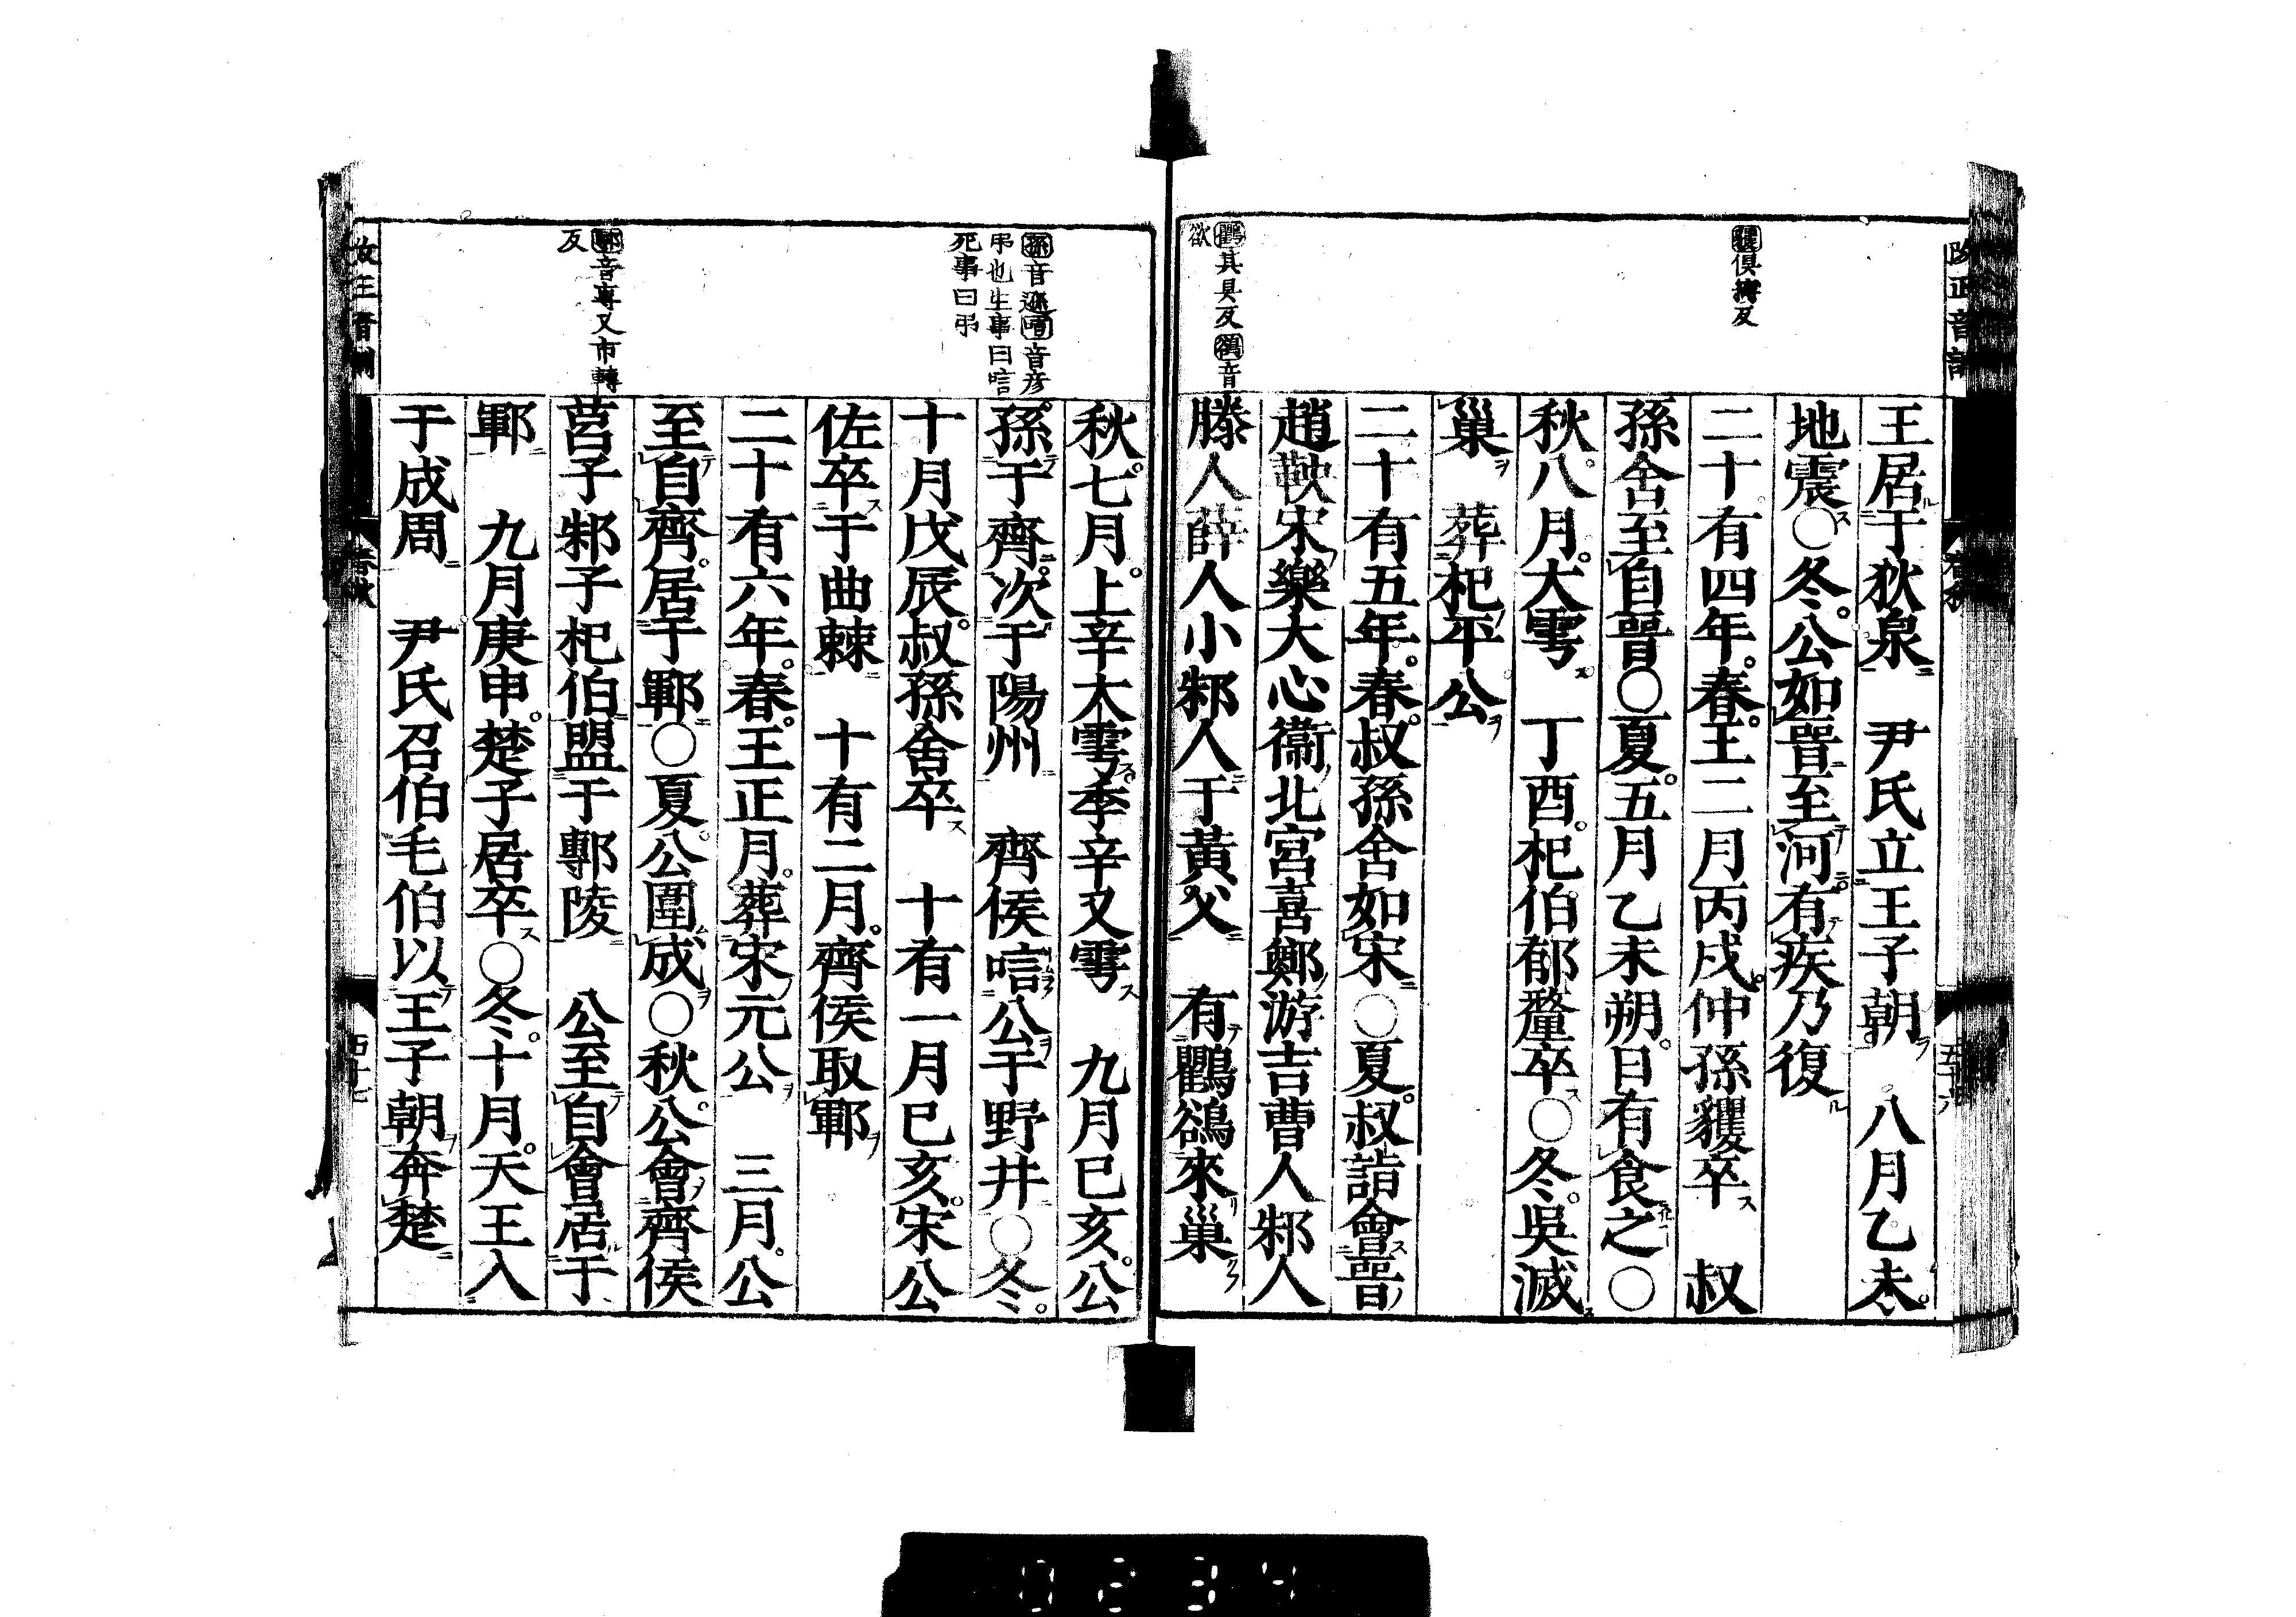 改正音訓
玃俱縛反
鸜其具反鵒音
欲
王居于狄泉　尹氏立王子朝　八月乙未
地震○冬公如晉至河有疾乃復
二十有四年春王二月丙戌仲孫貜卒　叔
孫舍至自晉○夏五月乙未朔日有食之○
秋八月大雩　丁酉杞伯郁釐卒○冬吳滅
巢　葬杞平公
二十有五年春叔孫舍如宋○夏叔詣會晉
趙鞅宋樂大心衞北宮喜鄭游吉曹人邾人
滕人薛人小邾人于黃父　有鸜鵒來巢
孫音遜唁音彦
弔也生事曰唁
死事曰弔
鄟音專又市轉
反
秋七月上辛大雩季辛又雩　九月已亥公
孫于齊次于陽州　齊侯唁公于野井○冬
十月戊辰叔孫舍卒　十有一月已亥宋公
佐卒于曲棘　十有二月齊侯取鄆
二十有六年春王正月葬宋元公　三月公
至自齊居于鄆○夏公圍成○秋公會齊侯
莒子邾子杞伯盟于鄟陵　公至自會居于
鄆　九月庚申楚子居卒○冬十月天王入
于成周　尹氏召伯毛伯以王子朝奔楚
春秋
0234